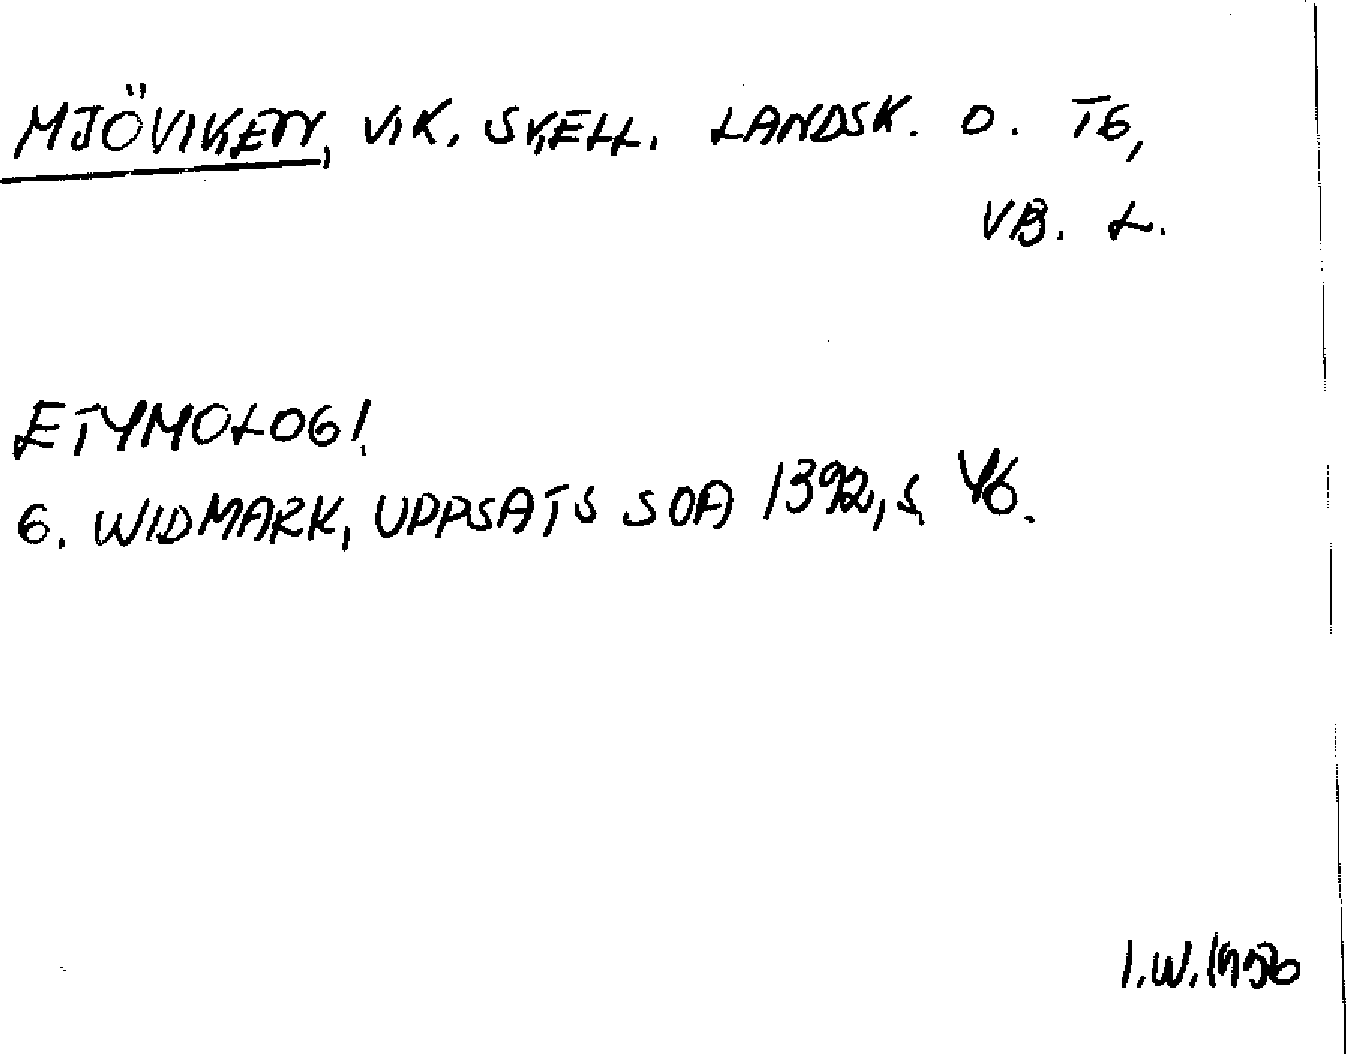 MJÖVIKEN, VIK, SKELL. LANDSK. O. TG,
VB. L.
ETYMOLOGI
G. WIDMARK, UPPSATS SOA 1392, S. 46.
I.W. 1950